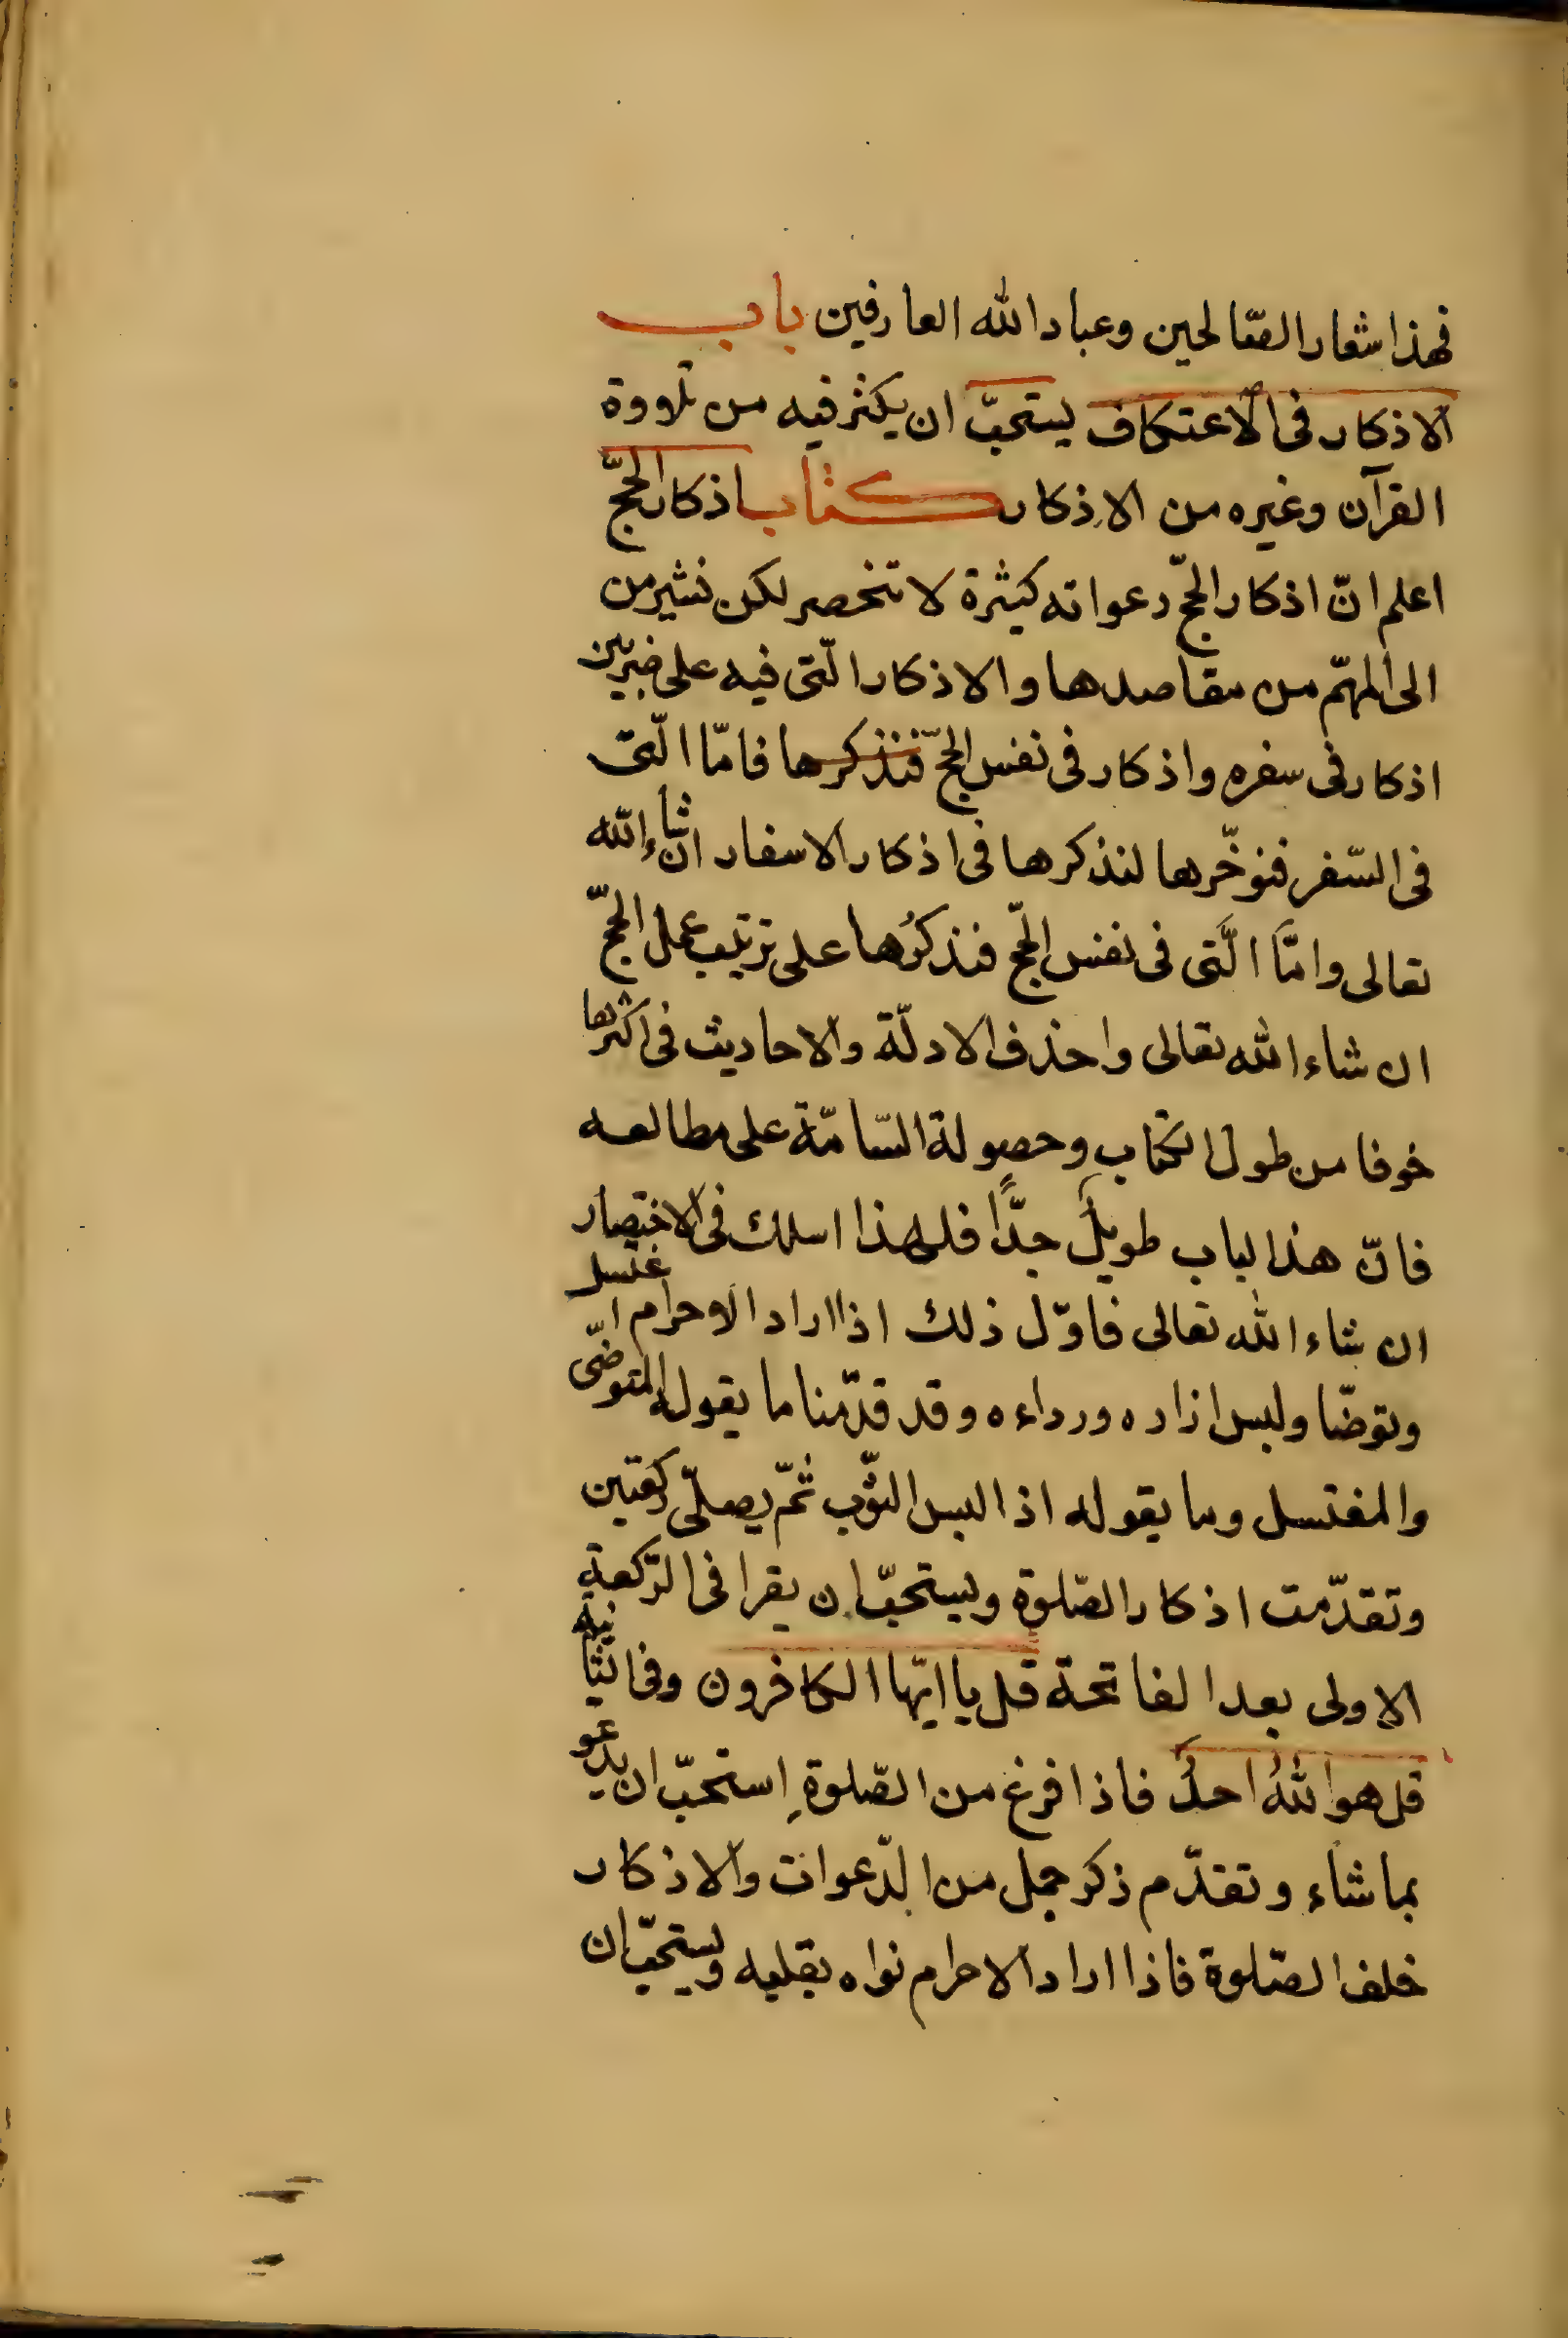 فهذا شعار الصّالحين وعباد الله العارفين باب
الاذكار فى الاعتكاف يستحبّ ان يكثر فيه من تلاووة
القرآن وغيره من الاذكار كتاب اذكار الحجّ
اعلم انّ اذكار الحجّ دعواته كيثرة لا تنحصر لكن نشير من
الى المهمّ من مقاصدها والاذكار الّتى فيه على ضربين
اذكار فى سفره واذكار فى نفس الحجّ فنذكرها فامّا الّتى
فى السّفر فنوخّرها لنذكرها فى اذكار الاسفار ان شاء الله
تعالى وامَّا الَّتى فى نفس الحجّ فنذكرُها على ترتيب عمل الحجّ
ان شاء الله تعالى واحذف الادلّة والاحاديث فى اكثرها
خوفا من طول الكتاب وحصولة السّامّة على مطالعه
فانّ هذا لباب طويلٌ جدًّا فلهذا اسلك فى الاختصار
ان شاء الله تعالى فاوّل ذلك اذا اراد الاحرام اغتسل
وتوضّا ولبس ازاره ورداءه وقد قدّمنا ما يقوله المتوضّى
والمغتسل وما يقوله اذا لبس الثّوب ثمّ يصلّى ركعتين
وتقدّمت اذكار الصّلوة ويستحبّ ان يقرا فى الرّكعة
الاولى بعد الفاتحة قل يا ايّها الكافرون وفى الثّانية
قل هو اللهُ احدٌ فاذا فرغ من الصّلوةِ استحبّ ان يدعو
بما شاء وتقدّم ذكر جمل من الدّعوات والاذكار
خلف الصّلوة فاذا اراد الاحرام نواه بقلبه ويستحبّ ان